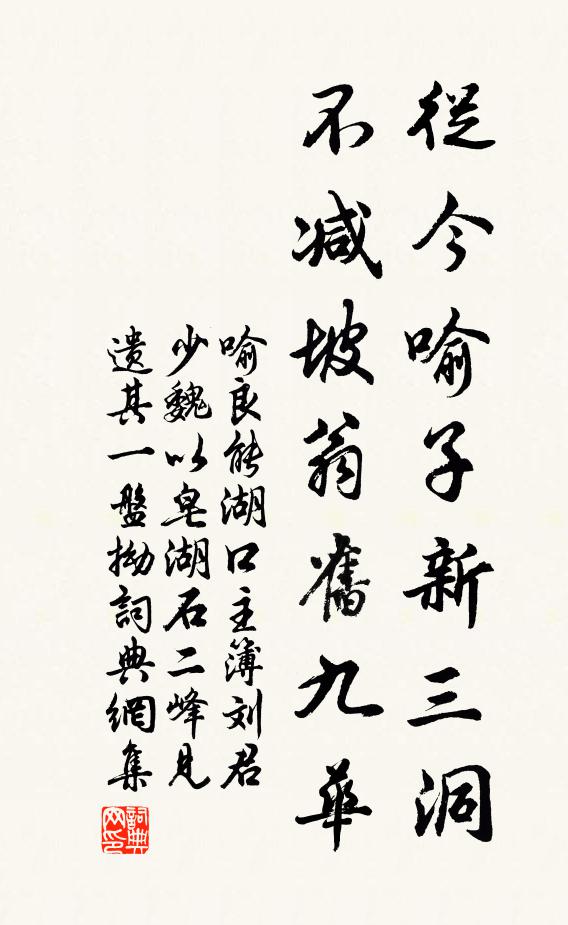 從今喻子新三洞
不減坡翁舊九華
喻良能湖口主簿刘君
少魏以皂湖石二峰見
遺其一盤拗詞典網集
詞典
网印